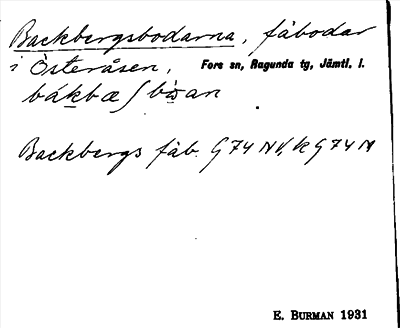 Backbergsbodarna, fäbodar
i Österåsen, Fors sn, Ragunda tg, Jämtl. l.
bákbæʃbòan
Backbergs fäb. G 74 NV, k G 74 N
E. BURMAN 1931